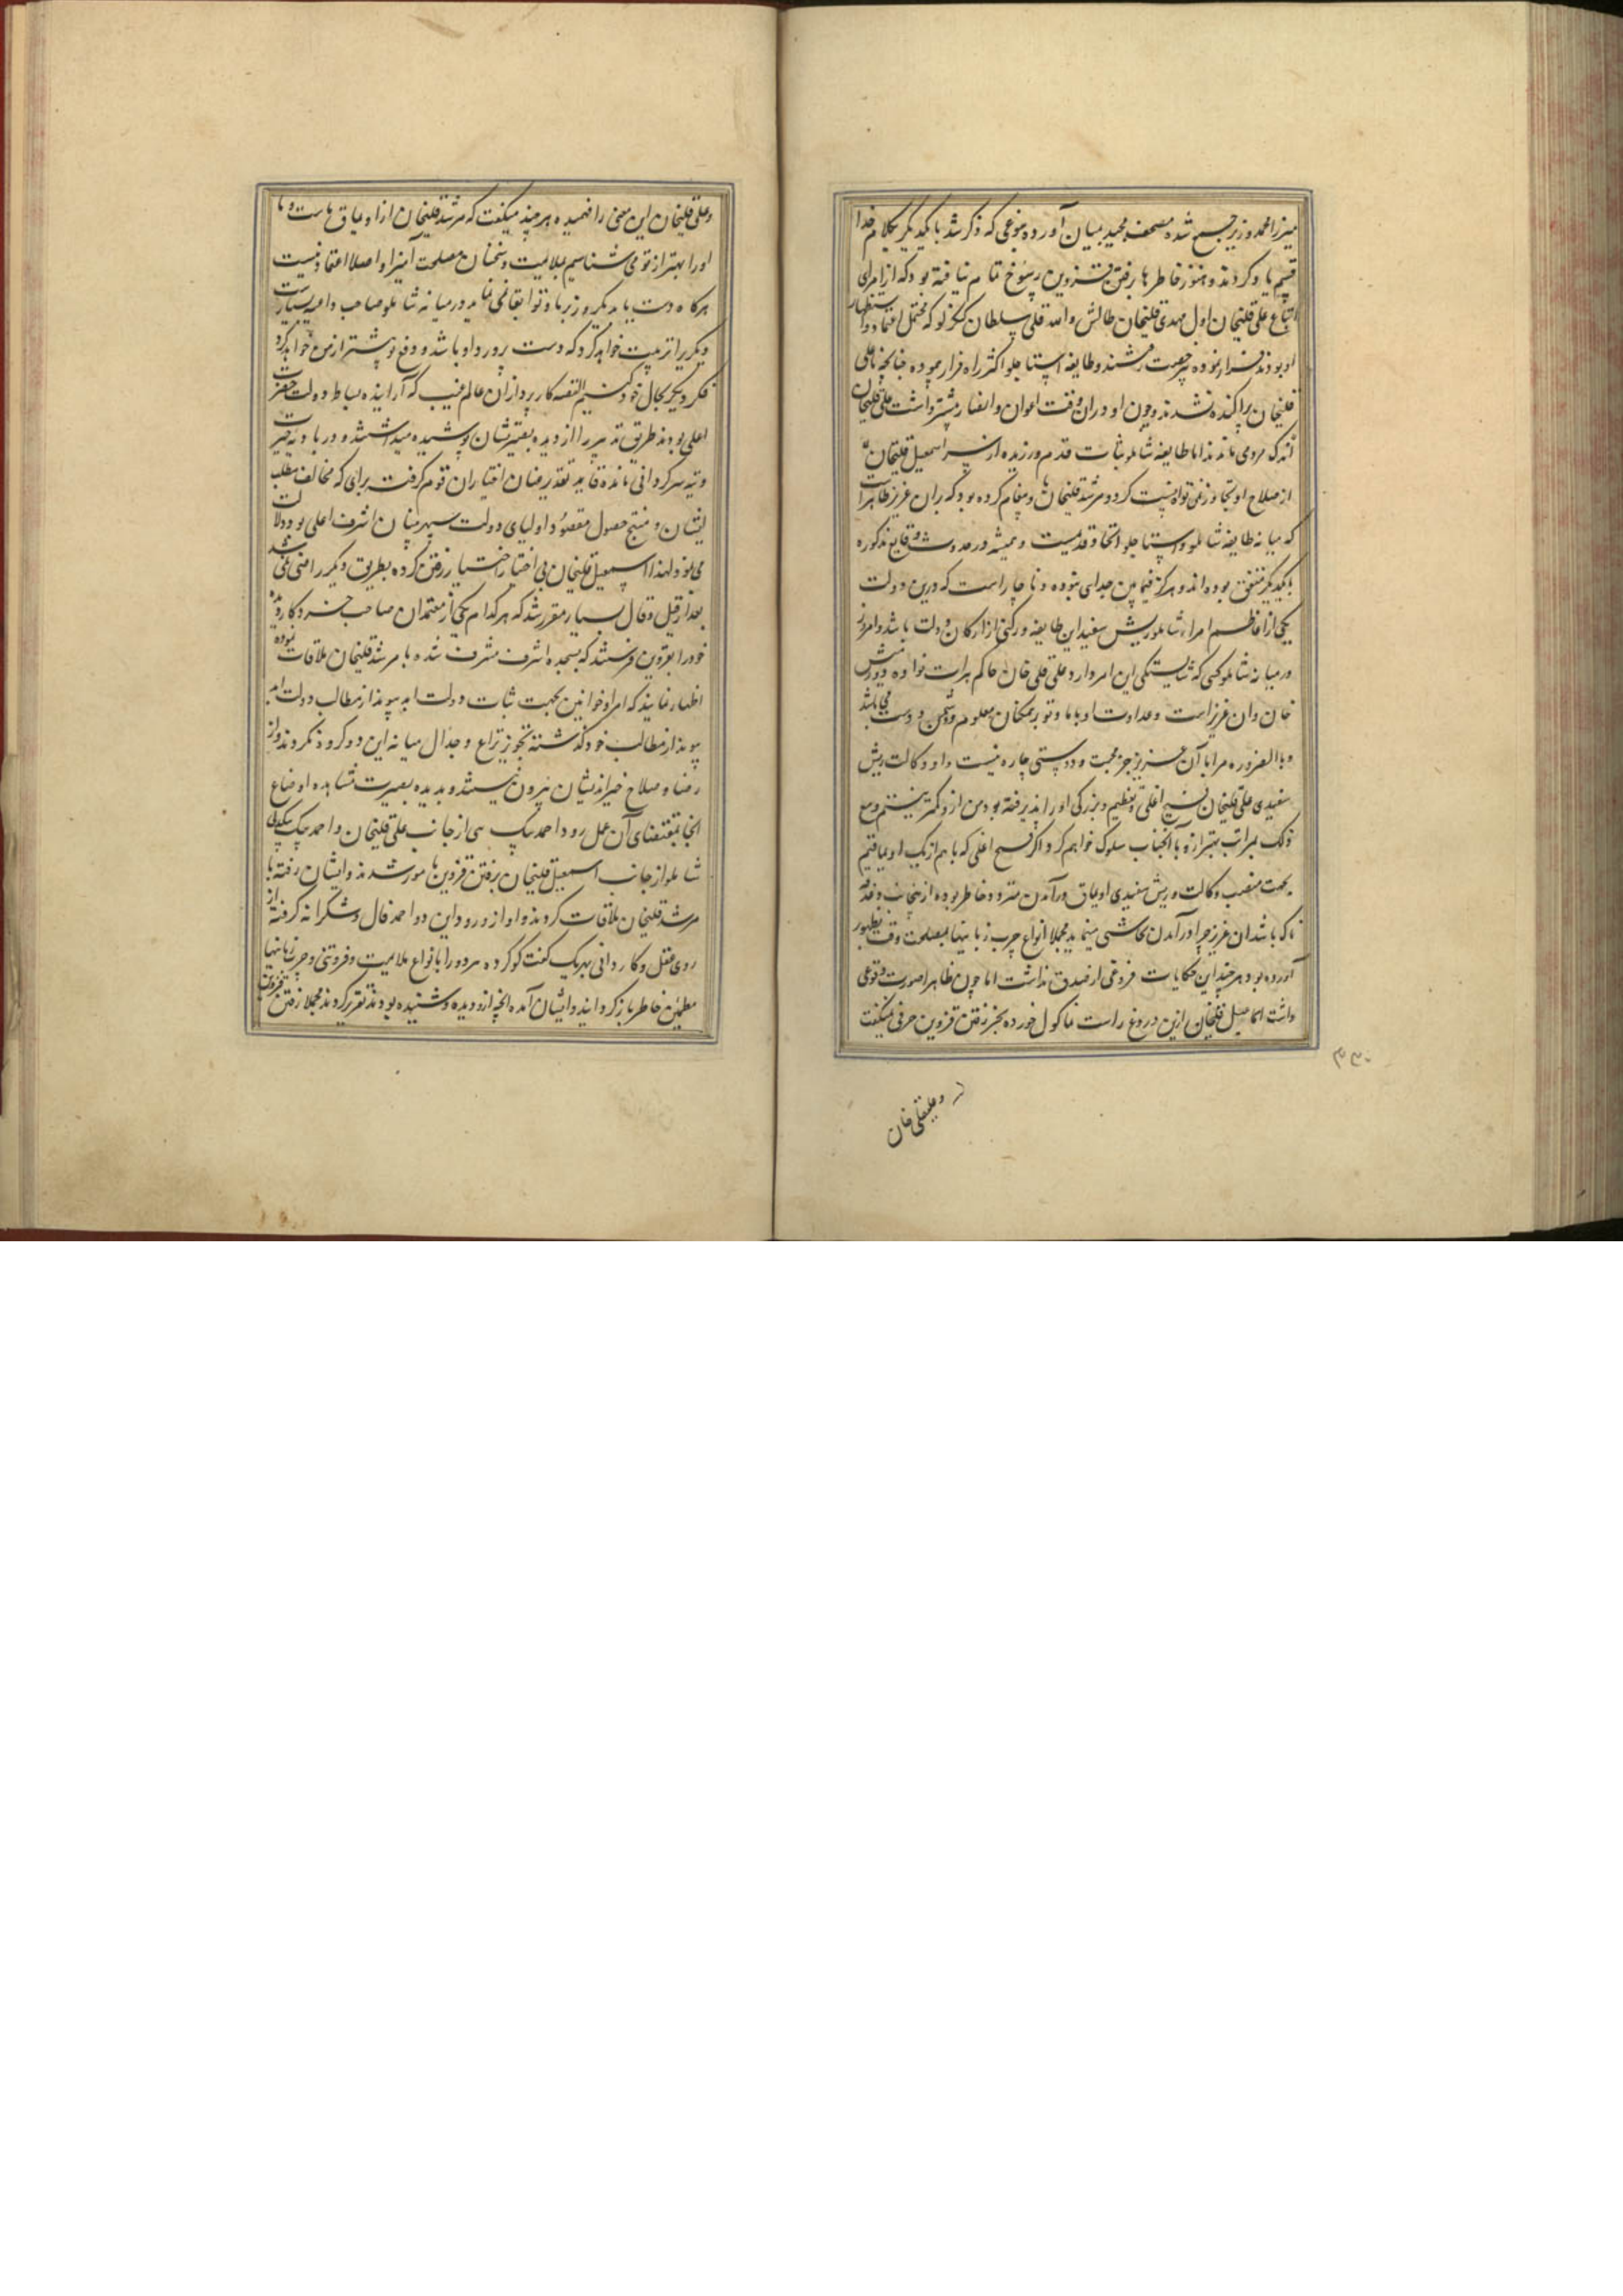 میرزا محمد وزیر جمع شده مصحف مجید بمیان آورده بنوعی که ذکر شد با یکدیگر بکلام خدا
قسم یاد کردند و هنوز خاطرها برفتن قزوین رسوخ تمام نیافته بود که از امرای
اتباع علی قلیخان اول مهدی قلیخان طالش والله قلی سلطان که محتمل اعتماد و استظهار
او بودند فرار نموده طایفه استاجلو اکثر راه فرار پیموده چنانچه با علی
قلیخان پراکنده نشدند و چون او در آن وقت اعوان و انصار بیشتر داشت علی قلیخان
اندک مردمی ماندند اما طایفه شاملو ثبات قدم ورزیده از سر اسمعیل قلیخان
از صلاح او تجاوز نمی توانست کرد و مرشد قلیخان پیغام کرده بود که بران عزیز ظاهر است
که میانه طایفه شاملو و استاجلو اتحاد قدیمست و همیشه در حدوث وقایع مذکوره
با یکدیگر متفق بوده اند و هرگز فیما بین جدایی نبوده و ناچار است که درین دولت
یکی از اعاظم امراء شاملو ریش سفید این طایفه و رکنی از ارکان دولت باشد و امروز
در میانه شاملو کسی که شایستگی این امر دارد علی قلی خان حاکم هرات نواده دورمش
خان و آن عزیز است و عداوت او با ما و تو بر همکنان معلوم و دشمن و دوست می باشد
و بالضروره مرا با آن عزیز جز محبت و دوستی چاره نیست و او وکالت و ریش
سفیدی علی قلیخان فسخ اعلی و تعظیم و بزرگی او را پذیرفته بود من از و کمتر نیستم و مع
ذلک بمراتب بهتر از و با آنجناب سلوک خواهم کرد و اگر فسخ اعلی که با هم از یک اویماقیم
بجهت منصب وکالت و ریش سفیدی اویماق در آمدن متردد خاطر بوده از جانب
تا که باشد آن عزیز چرا در آمدن تحاشی مینماید مجملا انواع چرب زبانیها بمصلحت وقت بظهور
آورده بود هر چند این حکایات فروغی از صدق نداشت اما چون ظاهرا صورت وقوعی
داشت اسماعیل قلیخان ازین دروغ راست نما گول خورده بجز رفتن قزوین حرفی نمیگفت
و علیقلی خان
۳۳۰
و علی قلیخان این معنی را فهمیده هر چند میگفت که مرشد قلیخان از اویماق ماست و ما
او را بهتر از تو می شناسیم بملایمت و سخنان مصلحت آمیز او اصلا اعتماد نیست
هرگاه دست یابد یکروز بر ما و تو ابقا نمی نماید در میانه شاملو صاحب داعیه بسیارست
دیگری را تربیت خواهد کرد که دست پرور او باشد و دفع تو پیشتر از من خواهد کرد
فکر دیگر بحال خود کنیم القصه کارپردازان عالم غیب که آراینده بساط دولت حضرت
اعلی بودند طریق تدبیر را از دیده بصیرتشان پوشیده میداشتند و در بادیه حیرت
و تیه سرگردانی مانده قاید تقدیر عنان اختیار آن قوم گرفت برای که مخالف مطلب
ایشان و منتج حصول مقصود اولیای دولت سپهر بنیان اشرف اعلی بود دلالت
می نمود لهذا اسمعیل قلیخان بی اختیار اختیار رفتن کرده بطریق دیگر راضی نمی شد
بعد از قیل و قال بسیار مقرر شد که هر کدام یکی از معتمدان صاحب خرد و کاردیده
خود را بقزوین فرستند که بسجده اشرف مشرف شده با مرشد قلیخان ملاقات نموده
اظهار نمایند که امرا و خوانین بجهت ثبات دولت ابد پیوند از مطالب دولت ابد
پیوند از مطالب خود گذشته تجویز نزاع و جدال میانه این دو گروه نکردند و از
رضا و صلاح خیراندیشان بیرون نیستند و بدیده بصیرت مشاهده اوضاع
آنجا بمقتضای آن عمل رود احمد بیک از جانب علی قلیخان و احمد بیک بیگدلی
شاملو از جانب اسمعیل قلیخان برفتن قزوین مامور شدند و ایشان رفته با
مرشد قلیخان ملاقات کردند و او از ورود این دو احمد فال و شگرانه گرفته از
روی عقل و کاردانی بهر یک گفت گو کرده هر دو را بانواع ملایمت و فروتنی و چرب زبانیها
مطمئن خاطر باز گردانید و ایشان آمده آنچه از و دیده و شنیده بودند تقریر کردند مجملا رفتن قزوین